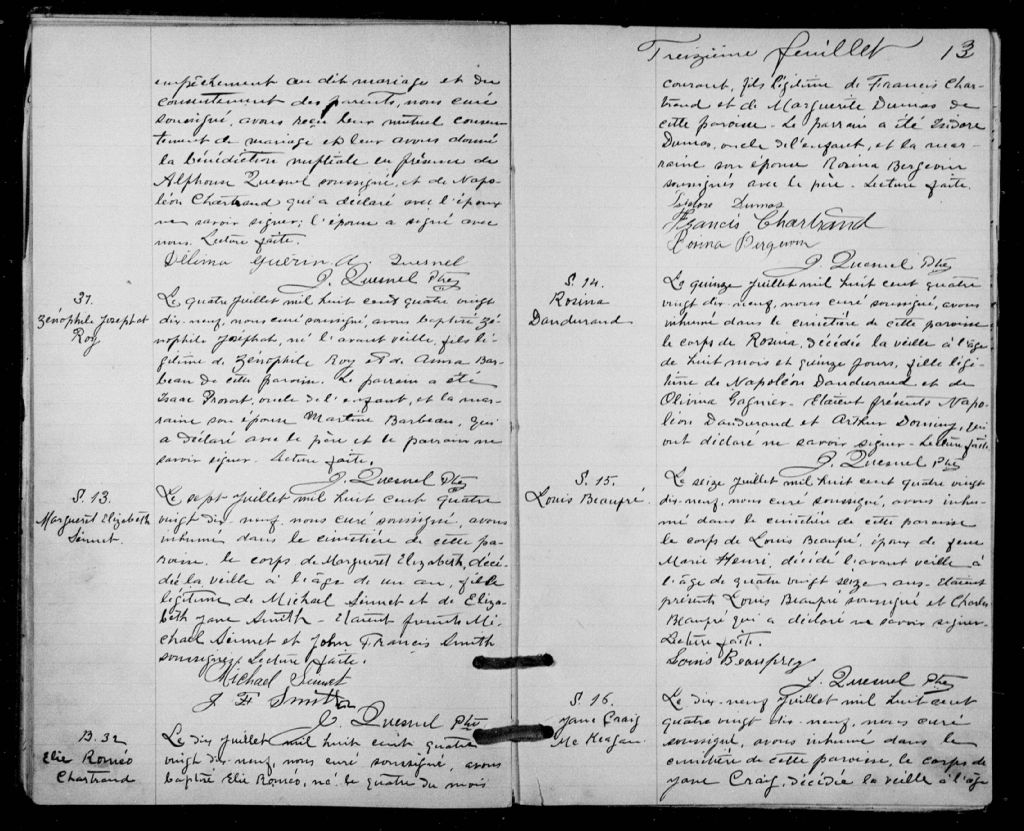 empêchement au dit mariage et du
consentement des parents, nous curé
soussigné, avons reçu leur mutuel consen-
tement de mariage et leur avons donné
la bénédiction nuptiale en présence de
Alphonse Quesnel soussigné, et de Napo-
léon Chartrand qui a déclaré avec l'époux
ne savoir signer; l'épouse a signé avec
nous. Lecture faite.
Vélima Guérin A. Quesnel
J. Quesnel Ptre
31.
Zénophile Josephat
Roy
Le quatre juillet mil huit cent quatre vingt
dix-neuf, nous curé soussigné, avons baptisé Zé-
nophile Joséphat, né l'avant veille, fils lé-
gitime de Zénophile Roy et de Anna Bar-
beau de cette paroisse. Le parrain a été
Isaac Provost, oncle de l'enfant, et la mar-
raine son épouse Martine Barbeau, qui
a déclaré avec le père et le parrain ne
savoir signer. Lecture faite.
J. Quesnel Ptre
S. 13.
Margueret Elizabeth
Sinnet.
Le sept juillet mil huit cent quatre
vingt dix-neuf, nous curé soussigné, avons
inhumé dans le cimetière de cette pa-
roisse, le corps de Margueret Elizabeth, décé-
dée la veille à l'âge de un an, fille
légitime de Michael Sinnet et de Eliza-
beth Jane Smith - Etaient présents Mi-
chael Sinnet et John Francis Smith
soussignés Lecture faite.
Michael Sinnet
J F Smith
J. Quesnel Ptre
B. 32
Elie Roméo
Chartrand
Le dix juillet mil huit cent quatre
vingt dix-neuf, nous curé soussigné, avons
baptisé Elie Roméo, né le quatre du mois
Treizième feuillet 13
courant, fils légitime de Francis Char-
trand et de Marguerite Dumas de
cette paroisse - Le parrain a été Isidore
Dumas, oncle de l'enfant, et la mar-
raine son épouse Rosina Bergevin
soussignés avec le père - Lecture faite.
Isidore Dumas
Francis Chartrand
Rosina Bergevin
J. Quesnel Ptre
S. 14.
Rosina
Dandurand
Le quinze juillet mil huit cent quatre
vingt dix-neuf, nous curé soussigné, avons
inhumé dans le cimetière de cette paroisse
le corps de Rosina, décédée la veille à l'âge
de huit mois et quinze jours, fille légi-
time de Napoléon Dandurand et de
Olivina Gagnier - Etaient présents Napo-
léon Dandurand et Arthur qui
ont déclaré ne savoir signer - Lecture faite
J. Quesnel Ptre
S. 15.
Louis Beaupré.
Le seize juillet mil huit cent quatre vingt
dix-neuf, nous curé soussigné, avons inhu-
mé dans le cimetière de cette paroisse
le corps de Louis Beaupré, époux de feue
Marie Henri, décédé l'avant veille à
l'âge de quatre vingt seize ans - Etaient
présents Louis Beaupré soussigné et Charles
Beaupré qui a déclaré ne savoir signer.
Lecture faite.
Louis Beauprey
J. Quesnel Ptre
S. 16.
Jane Craig
Mc Keagan.
Le dix-neuf juillet mil huit cent
quatre vingt dix-neuf, nous curé
soussigné, avons inhumé dans le
cimetière de cette paroisse, le corps de
Jane Craig, décédée la veille à l'âge